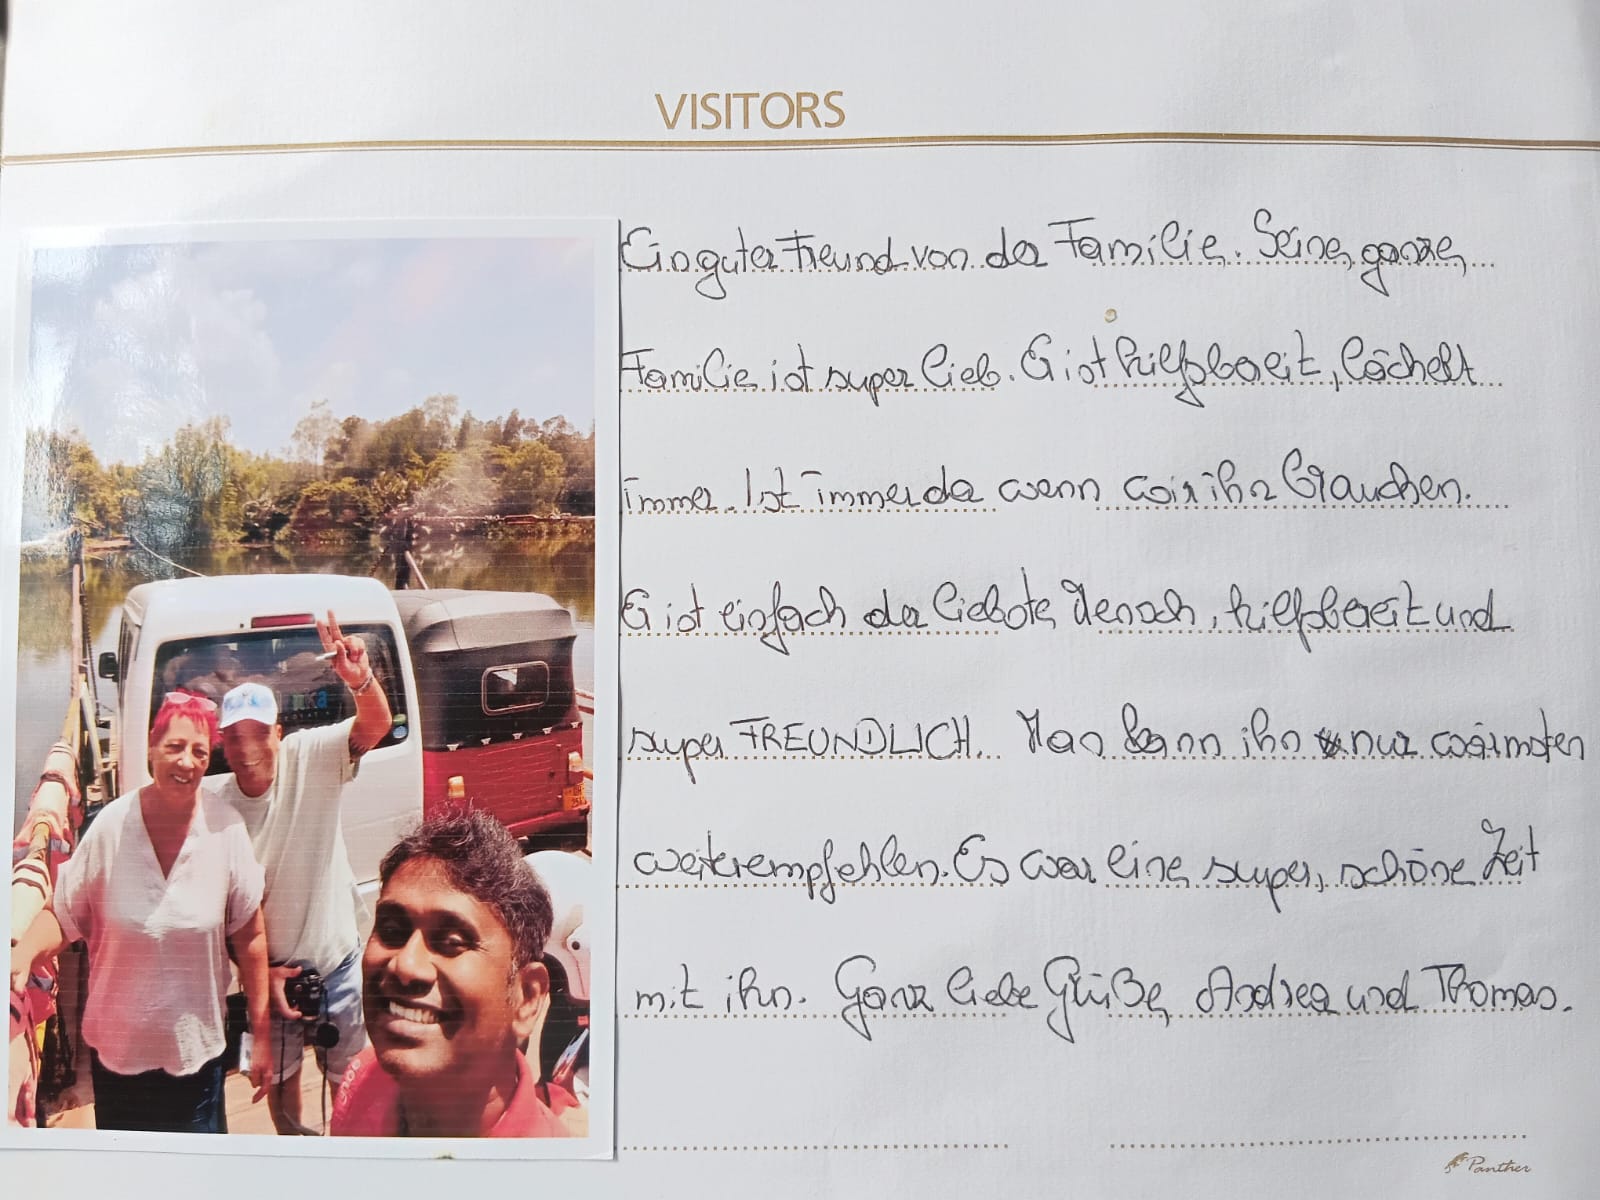 VISITORS
Ein guter Freund von der Familie. Seine ganze
Familie ist super lieb. Er ist hilfsbereit, lächelt
immer. Ist immer da wenn wir ihn brauchen.
Er ist einfach der liebste Mensch, hilfsbereit und
super FREUNDLICH. Man kann ihn nur wärmsten
weiterempfehlen. Es war eine super, schöne Zeit
mit ihn. Ganz liebe Grüße, Andrea und Thomas.
Panther